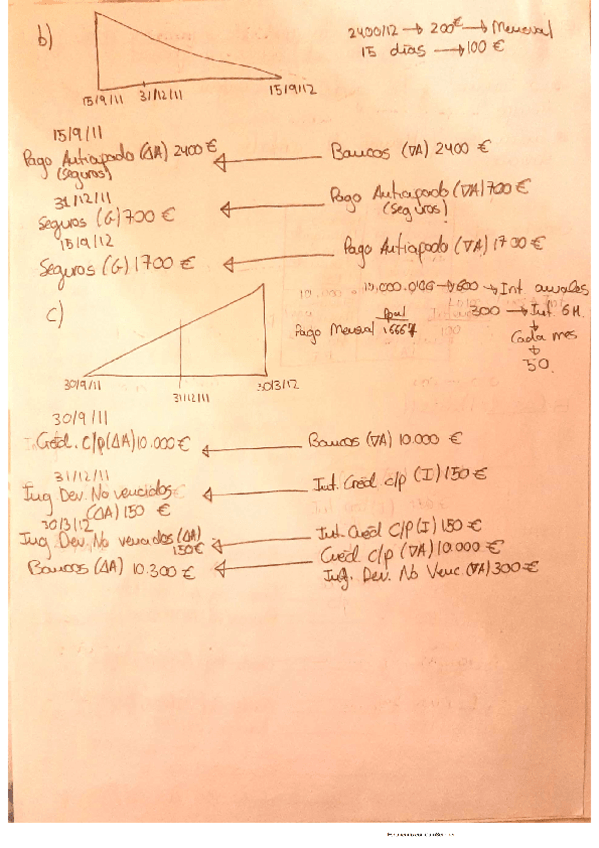 b)
2400/12 → 200€ → Mensual
15 días → 100 €
15/9/11 31/12/11 15/9/12
15/9/11
Pago Anticipado (ΔA) 2400 € ← Bancos (∇A) 2400 €
(Seguros)
31/12/11
Seguros (G) 700 € ← Pago Anticipado (∇A) 700 €
(Seguros)
15/9/12
Seguros (G) 1700 € ← Pago Anticipado (∇A) 1700 €
c)
10.000.0'06 → 600 → Int. anuales
300 → Int. 6M.
Pago Mensual 1666'7
Cada mes
50
30/9/11 31/12/11 30/3/12
30/9/11
Créd. c/p (ΔA) 10.000 € ← Bancos (∇A) 10.000 €
31/12/11
Ing. Dev. No vencidos ← Int. Créd c/p (I) 150 €
(ΔA) 150 €
30/3/12
Ing. Dev. No vencidos (ΔA) ← Int. Créd C/P (I) 150 €
150 €
Créd c/p (∇A) 10.000 €
Bancos (ΔA) 10.300 € ← Ing. Dev. No Venc. (∇A) 300 €